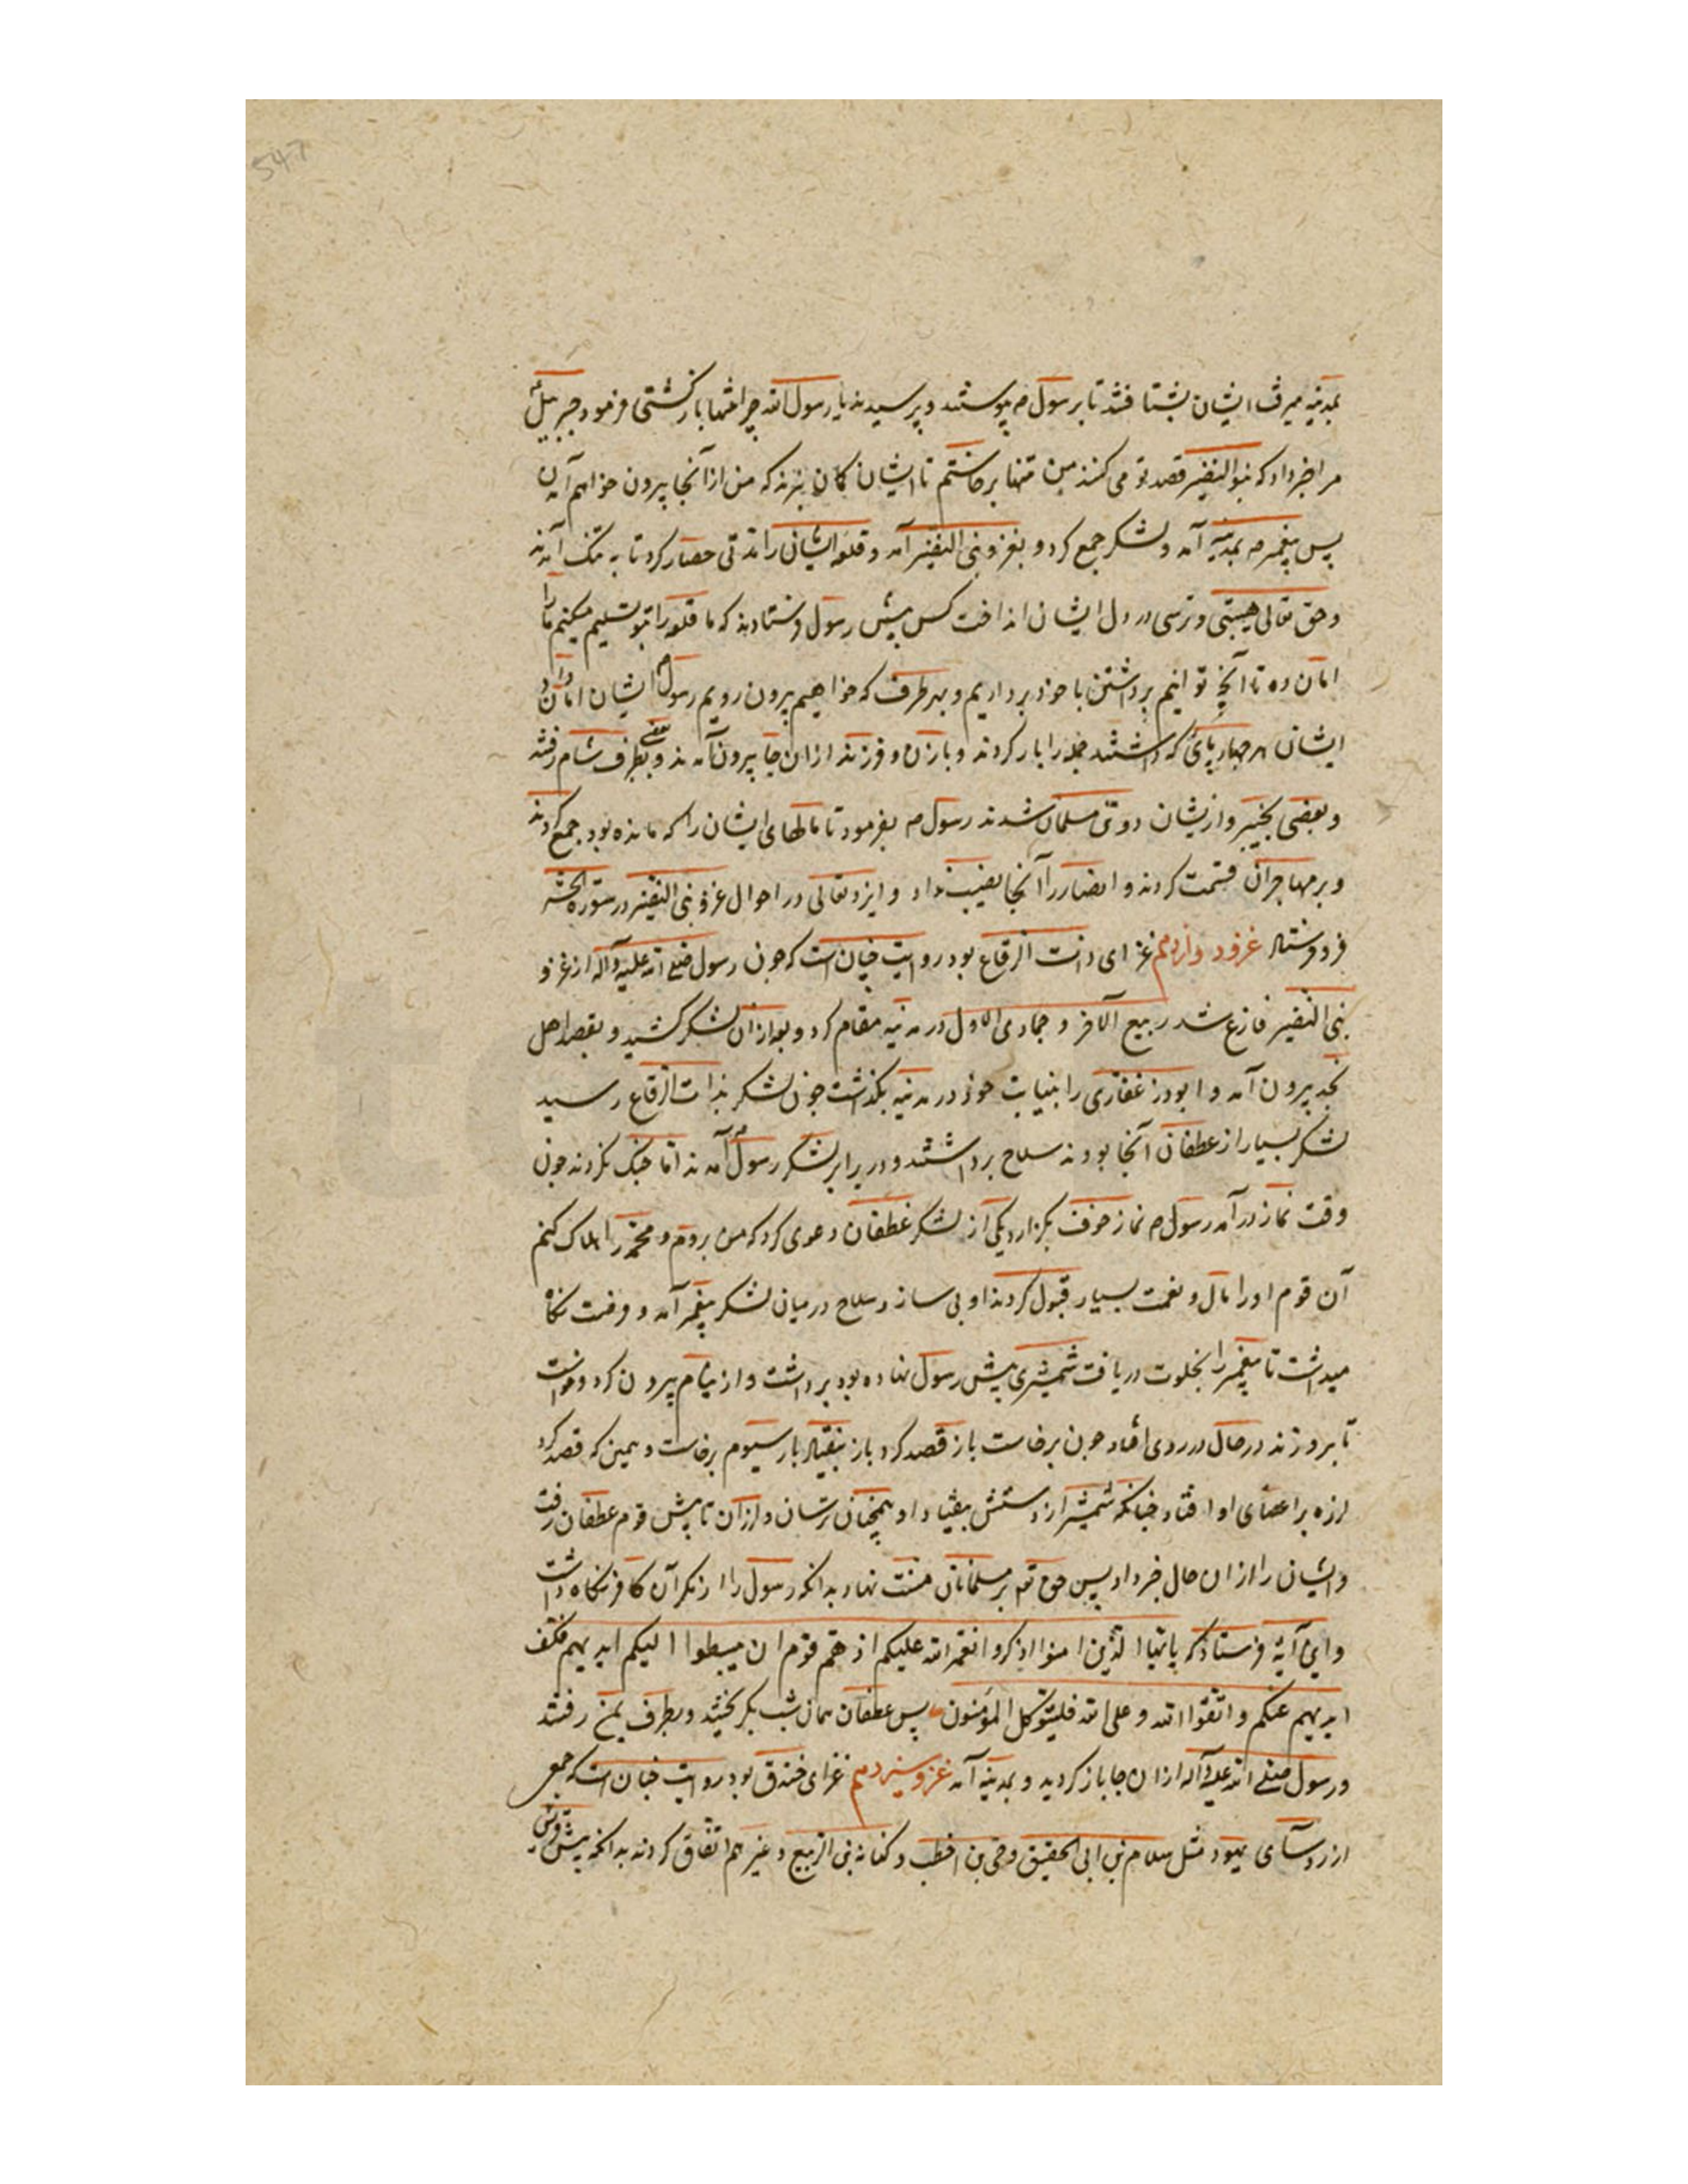 547
بمدینه میرفت ایشان بشتافتند تا برسول م پیوستند و پرسیدند یا رسول الله چرا تنها باز گشتی فرمود جبرییل
مرا خبر داد که بنو النضیر قصد تو می کنند من تنها برخاستم تا ایشان گمان نبرند که من از آنجا بیرون خواهم آمدن
پس پیغمبر م بمدینه آمد و لشکر جمع کرد و بغزو بنی النضیر آمد و قلعه ایشان را مدتی حصار کرد تا به تنگ آمدند
و حق تعالی هیبتی و ترسی در دل ایشان انداخت کس پیش رسول فرستادند که ما قلعه را بتو تسلیم میکنیم ما را
امان ده تا آنچ توانیم برداشتن با خود برداریم و بهر طرف که خواهیم بیرون رویم رسول م ایشان امان داد
ایشان هر چهارپائی که داشتند جمله را بار کردند و با زن و فرزند از ان جا بیرون آمدند و بعضی بطرف شام رفتند
و بعضی بخیبر و ازیشان دو تن مسلمان شدند رسول م بفرمود تا مالهای ایشان را که مانده بود جمع کردند
و بر مهاجران قسمت کردند و انصار را آنجا نصیب نداد و ایزد تعالی در احوال غزو بنی النضیر در سورة الحشر
فرو فرستاد غزو دوازدهم غزای ذات الرقاع بود روایت چنان است که چون رسول صلی الله علیه و آله از غزو
بنی النضیر فارغ شد ربیع الآخر و جمادی الاول در مدینه مقام کرد و بعد از ان لشکر کشید و بقصد اهل
نجد بیرون آمد و ابوذر غفاری را بنیابت خود در مدینه بگذاشت چون لشکر بذات الرقاع رسید
لشکر بسیار از غطفان آنجا بودند سلاح برداشتند و در برابر لشکر رسول م آمدند اما جنگ نکردند چون
وقت نماز درآمد رسول م نماز خوف بگزارد یکی از لشکر غطفان دعوی کرد که من بروم و محمد را هلاک کنم
آن قوم او را مال و نعمت بسیار قبول کردند او بی ساز و سلاح در میان لشکر پیغمبر آمد و وقت نگاه
میداشت تا پیغمبر را بخلوت دریافت شمشیری پیش رسول نهاده بود برداشت و از نیام بیرون کرد و خواست
تا برو زند در حال در روی افتاد چون برخاست باز قصد کرد باز بیفتاد بار سیوم برخاست و همین که قصد کرد
لرزه بر اعضای او افتاد چنانکه شمشیر از دستش بیفتاد و او همچنان ترسان و لرزان تا پیش قوم غطفان رفت
و ایشان را از ان حال خبر داد پس حق تع بر مسلمانان منت نهاد بدانکه رسول را از مکر آن کافر نگاه داشت
و این آیه فرستاد که یا ایها الذین امنوا اذکروا نعمة الله علیکم اذ هم قوم ان یبسطوا الیکم ایدیهم فکف
ایدیهم عنکم و اتقوا الله و علی الله فلیتوکل المؤمنون پس غطفان همان شب بگریختند و بطرف یمن رفتند
و رسول صلی الله علیه و آله از ان جا باز گردید و بمدینه آمد غزو سیزدهم غزای خندق بود روایت چنان است که جمعی
از رؤسآی یهود مثل سلام بن ابی الحقیق و حی بن اخطب و کنانه بنی الربیع و غیرهم اتفاق کردند بدانکه پیش قریش